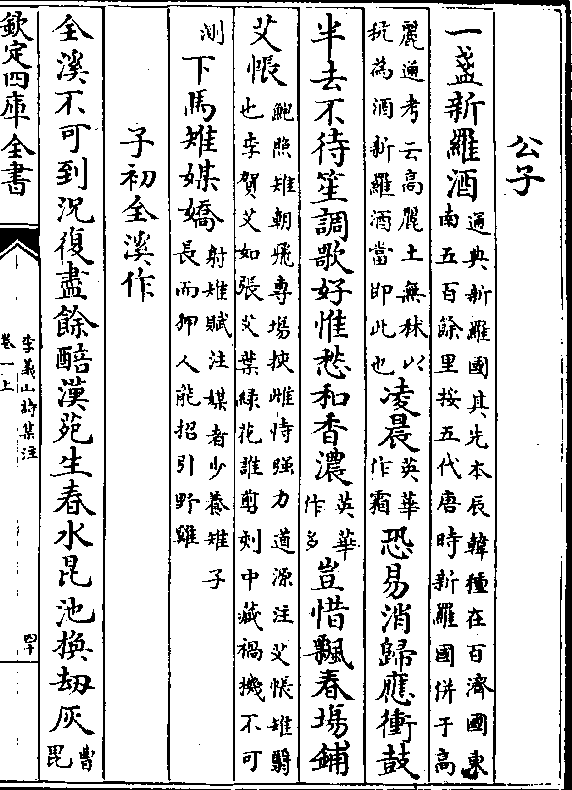 公子
一盞新羅酒通典新羅國其先本辰韓種在百濟國東
南五百餘里按五代唐時新羅國併于高
麗通考云高麗土無秫以
秔為酒新羅酒當即此也凌晨英華
作霜恐易消歸應衝鼓
半去不待笙調歌好惟愁和香濃英華
作多豈惜飄春場鋪
艾帳鮑照雉朝飛專場挾雌恃强力道源注艾帳雉翳
也李賀艾如張艾葉緑花誰剪刻中藏禍機不可
測下馬雉媒嬌射雉賦注媒者少養雉子
長而狎人能招引野雞
子初全溪作
全溪不可到況復盡餘醅漢苑生春水昆池換劫灰曹
毘
欽定四庫全書
李義山詩集注
卷一上
四十